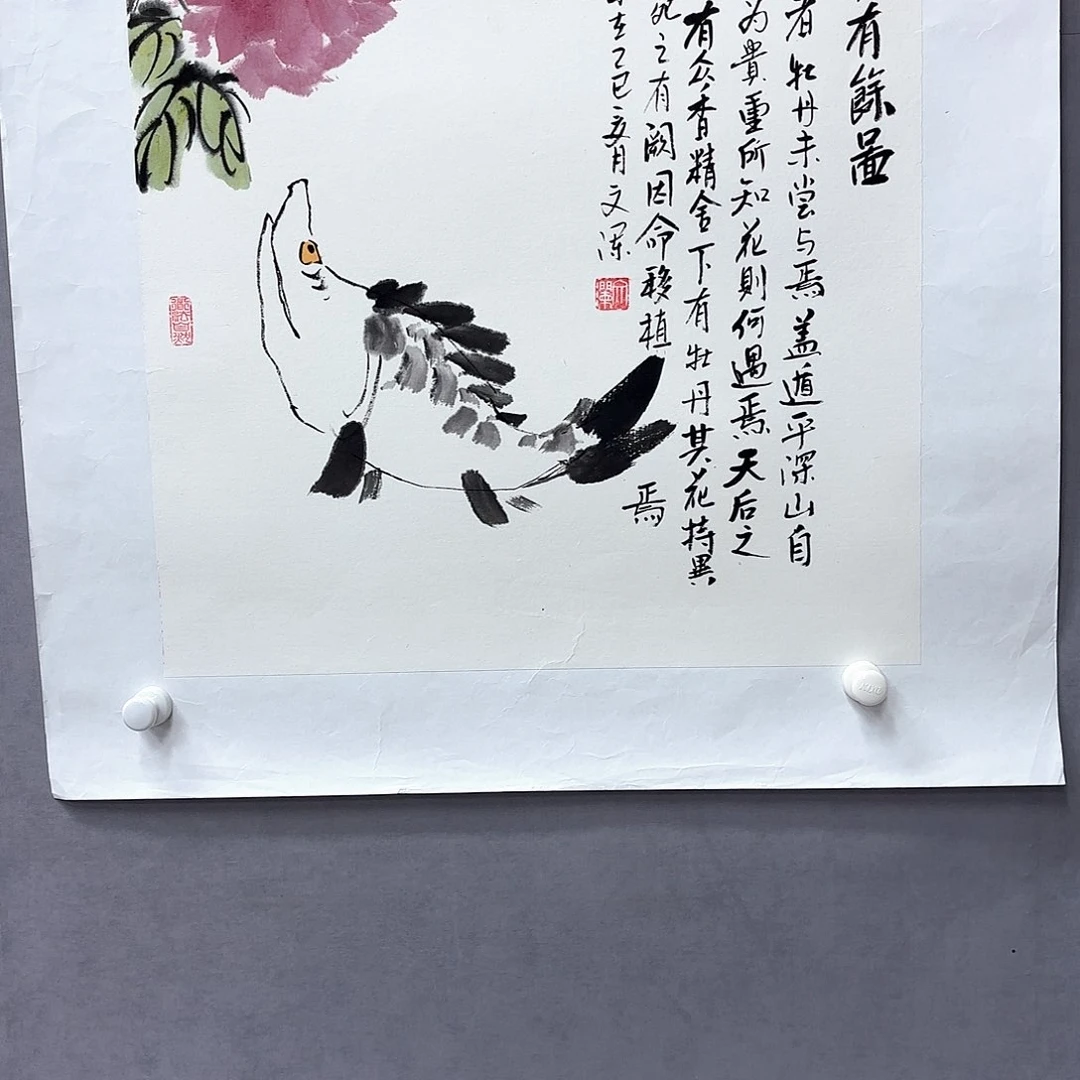 有餘啚
者牡丹未尝与焉盖遁乎深山自
为貴重所知花則何遇焉天后之
有众香精舍下有牡丹其花特異
之有阙因命移植
焉
乙巳亥月文澜